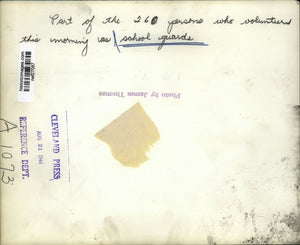 Part of the 260 persons who volunteered
this morning as school guards
Photo by James Thomas
CLEVELAND PRESS
AUG 21 1944
REFERENCE DEPT.
A 1073